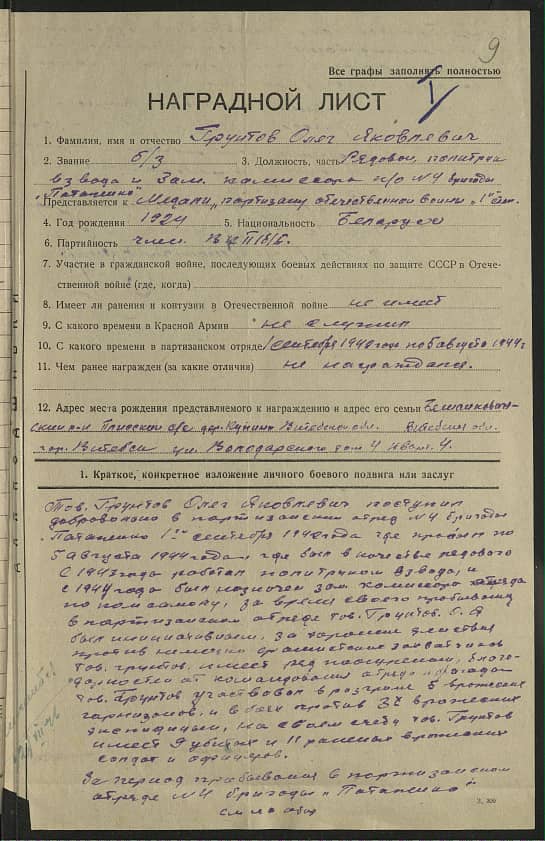 9
Все графы заполнять полностью
V
НАГРАДНОЙ ЛИСТ
1. Фамилия, имя и отчество Грунтов Олег Яковлевич
2. Звание б/з 3. Должность, часть Рядовой, политрук
взвода и Зам. комиссара п/о №4 бригады
"Потапенко"
Представляется к Медали "партизану отечественной войны" 1ой ст.
4. Год рождения 1924 5. Национальность Беларус
6. Партийность член
7. Участие в гражданской войне, последующих боевых действиях по защите СССР в Отече-
ственной войне (где, когда)
8. Имеет ли ранения и контузии в Отечественной войне не имеет
9. С какого времени в Красной Армии не служил
10. С какого времени в партизанском отряде 1 сентября 1942 года по 5 августа 1944 г
11. Чем ранее награжден (за какие отличия) не награждался.
12. Адрес места рождения представляемого к награждению и адрес его семьи Бешенкович-
ский р-н дер. Витебской обл. Витебская обл.
гор. Витебск ул. Володарского дом 4 кварт. 4.
1. Краткое, конкретное изложение личного боевого подвига или заслуг
Тов. Грунтов Олег Яковлевич поступил
добровольно в партизанский отряд №4 бригады
Потапенко 1го сентября 1942 года где пробыл по
5 августа 1944 года, где был в качестве рядового
С 1943 года работал политруком взвода, и
с 1944 года был назначен зам. комиссара отряда
по комсомолу, за время своего пребывания
в партизанском отряде тов. Грунтов О.Я
был инициативным, за хорошие действия
против немецко фашистских захватчиков
тов. Грунтов имеет ряд поощрений, благо-
дарностей от командования отряда и бригады
тов. Грунтов участвовал в розгроме 5 вражеских
гарнизонов, и в боях против 32 вражеских
экспедиций, на своем счету тов. Грунтов
имеет 9 убитых и 11 раненых вражеских
солдат и офицеров.
За период пребывания в партизанском
отряде №4 бригады "Потапенко"
см на обор
З. 300